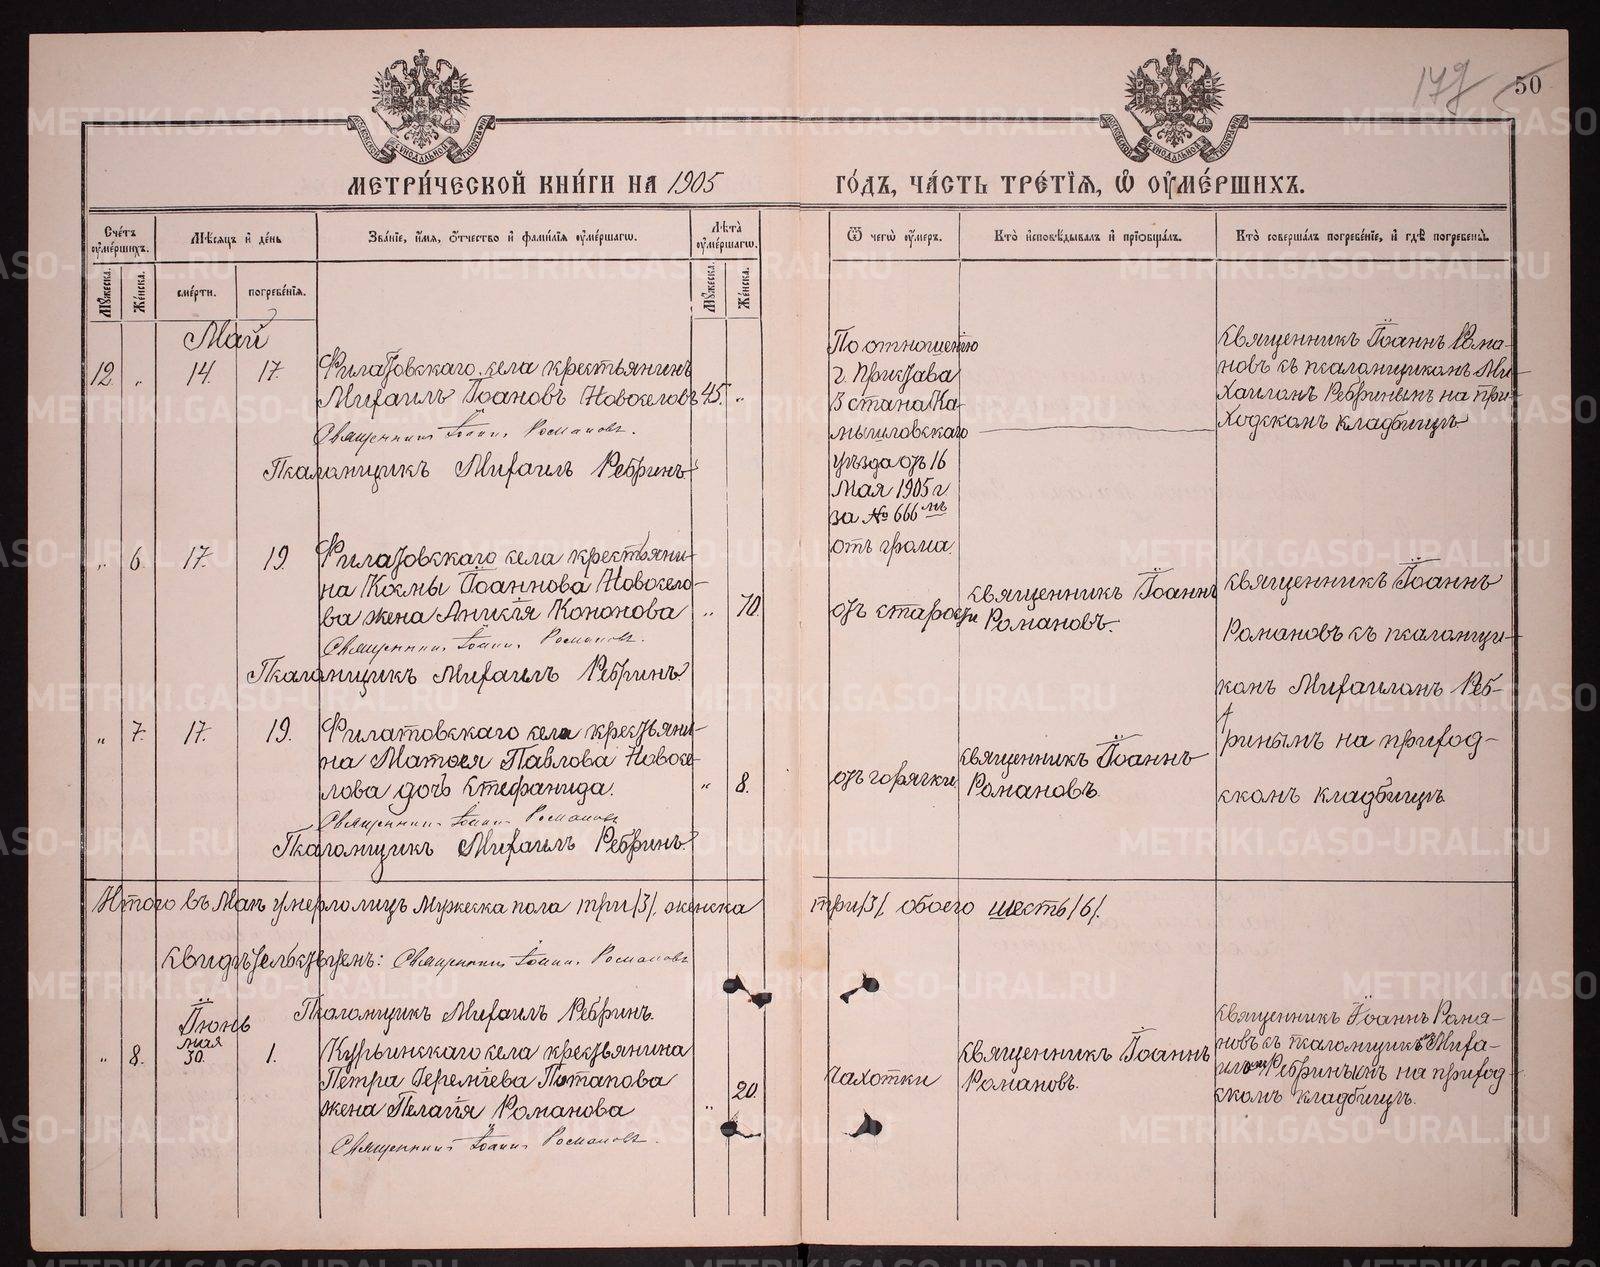 179
50
МЕТРИ́ЧЕСКОЙ КНИ́ГИ НА 1905
ГО́ДЪ, ЧА́СТЬ ТРЕ́ТІѦ, Ѽ ОУМЕ́РШИХЪ.
Сче́тъ оуме́ршихъ.
Мѣ́сяцъ и де́нь
Зва́ніе, и́мя, о́тчество и фами́лія оуме́ршагѡ.
Лѣ́та оуме́ршагѡ.
Ѿ чегѡ̀ оу́меръ.
Кто̀ исповѣ́дывалъ и пріобща́лъ.
Кто̀ соверша́лъ погребе́ніе, и гдѣ̀ погребены̀.
Мꙋ́жеска.
Же́нска.
сме́рти.
погребе́нія.
Мꙋ́жеска.
Же́нска.
Май
12. „ 14. 17. Филатовскаго села крестьянинъ
Михаилъ Іоановъ Новоселовъ 45. „
Священникъ Іоаннъ Романовъ.
Псаломщикъ Михаилъ Ребринъ
По отношенію
г. Пристава
3 стана Ка-
мышловскаго
уѣзда отъ 16
Мая 1905 г.
за № 666 мъ
отъ грома.
Священникъ Іоаннъ Рома-
новъ съ псаломщикомъ Ми-
хаиломъ Ребринымъ на при-
ходскомъ кладбищѣ
„ 6. 17. 19. Филатовскаго села крестьяни-
на Космы Іоаннова Новосело-
ва жена Аникія Кононова „ 70.
Священникъ Іоаннъ Романовъ.
Псаломщикъ Михаилъ Ребринъ.
отъ старости
Священникъ Іоаннъ
Романовъ.
Священникъ Іоаннъ
Романовъ съ псаломщи-
комъ Михаиломъ Реб-
ринымъ на приход-
скомъ кладбищѣ
„ 7. 17. 19. Филатовскаго села крестьяни-
на Матѳея Павлова Новосе-
лова дочь Стефанида. „ 8.
Священникъ Іоаннъ Романовъ
Псаломщикъ Михаилъ Ребринъ.
отъ горячки
Священникъ Іоаннъ
Романовъ.
Итого въ Маѣ умерло лицъ мужеска пола три /3/. женска три /3/. обоего шесть /6/.
Свидѣтельствуемъ: Священникъ Іоаннъ Романовъ
Псаломщикъ Михаилъ Ребринъ.
Іюнь
мая
„ 8. 30. 1. Курьинскаго села крестьянина
Петра Іереміева Потапова 20.
жена Пелагія Романова „
Священникъ Іоаннъ Романовъ.
чахотки
Священникъ Іоаннъ
Романовъ.
Священникъ Іоаннъ Рома-
новъ съ псаломщикомъ Миха-
иломъ Ребринымъ на приход-
скомъ кладбищѣ.
METRIKI.GASO-URAL.RU